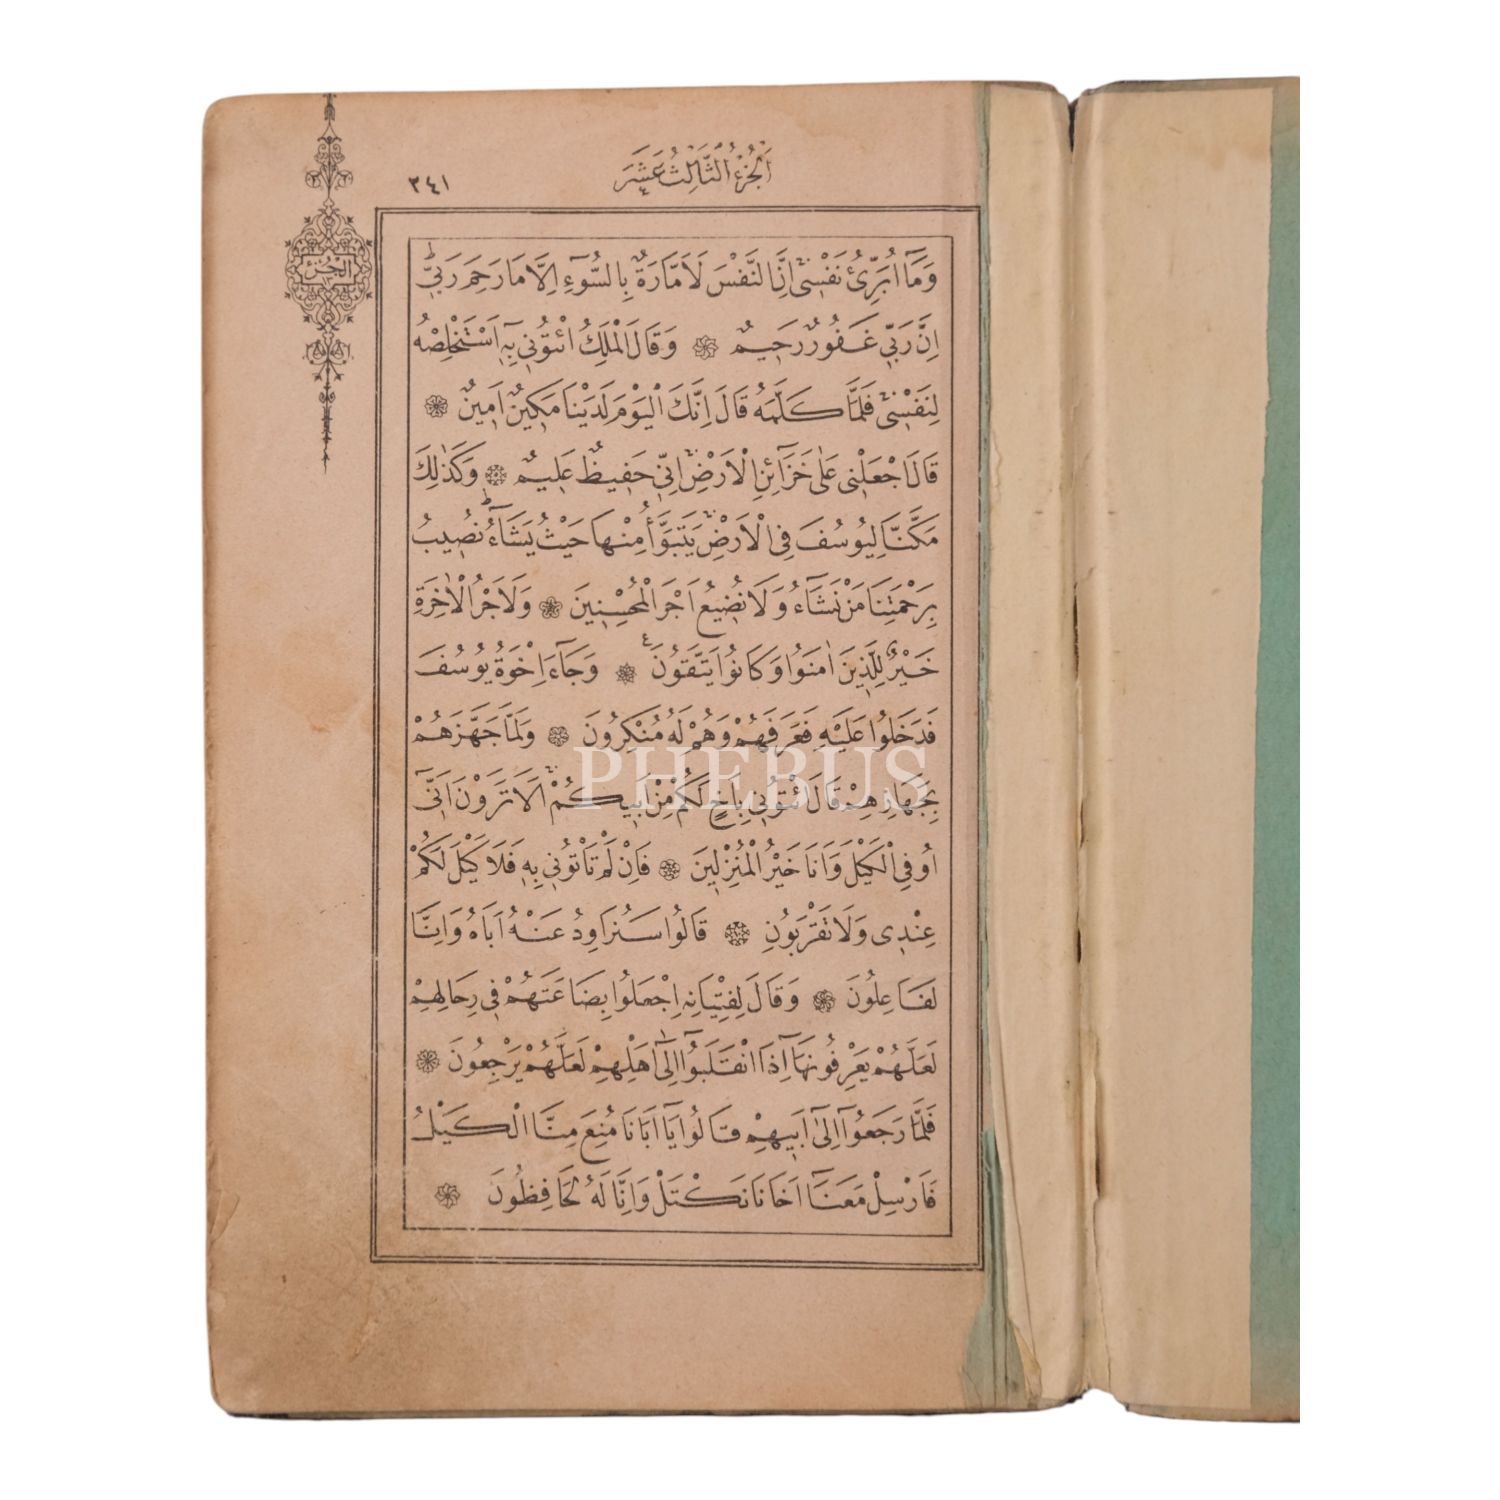 اَلْجُزْءُ الثَّالِثَ عَشَرَ
٢٤١
الجزء
١٣
وَمَٓا اُبَرِّئُ نَفْسٖيۚ اِنَّ النَّفْسَ لَاَمَّارَةٌ بِالسُّٓوءِ اِلَّا مَا رَحِمَ رَبّٖيۜ
اِنَّ رَبّٖي غَفُورٌ رَحٖيمٌ ۞ وَقَالَ الْمَلِكُ ائْتُونٖي بِهٖٓ اَسْتَخْلِصْهُ
لِنَفْسٖيۚ فَلَمَّا كَلَّمَهُ قَالَ اِنَّكَ الْيَوْمَ لَدَيْنَا مَكٖينٌ اَمٖينٌ ۞
قَالَ اجْعَلْنٖي عَلٰى خَزَٓائِنِ الْاَرْضِۚ اِنّٖي حَفٖيظٌ عَلٖيمٌ ۞ وَكَذٰلِكَ
مَكَّنَّا لِيُوسُفَ فِي الْاَرْضِۚ يَتَبَوَّأُ مِنْهَا حَيْثُ يَشَٓاءُۜ نُصٖيبُ
بِرَحْمَتِنَا مَنْ نَشَٓاءُ وَلَا نُضٖيعُ اَجْرَ الْمُحْسِنٖينَ ۞ وَلَاَجْرُ الْاٰخِرَةِ
خَيْرٌ لِلَّذٖينَ اٰمَنُوا وَكَانُوا يَتَّقُونَ ۞ وَجَٓاءَ اِخْوَةُ يُوسُفَ
فَدَخَلُوا عَلَيْهِ فَعَرَفَهُمْ وَهُمْ لَهُ مُنْكِرُونَ ۞ وَلَمَّا جَهَّزَهُمْ
بِجَهَازِهِمْ قَالَ ائْتُونٖي بِاَخٍ لَكُمْ مِنْ اَبٖيكُمْۚ اَلَا تَرَوْنَ اَنّٖٓي
اُوفِي الْكَيْلَ وَاَنَا خَيْرُ الْمُنْزِلٖينَ ۞ فَاِنْ لَمْ تَأْتُونٖي بِهٖ فَلَا كَيْلَ لَكُمْ
عِنْدٖي وَلَا تَقْرَبُونِ ۞ قَالُوا سَنُرَاوِدُ عَنْهُ اَبَاهُ وَاِنَّا
لَفَاعِلُونَ ۞ وَقَالَ لِفِتْيَانِهِ اجْعَلُوا بِضَاعَتَهُمْ فٖي رِحَالِهِمْ
لَعَلَّهُمْ يَعْرِفُونَهَٓا اِذَا انْقَلَبُٓوا اِلٰٓى اَهْلِهِمْ لَعَلَّهُمْ يَرْجِعُونَ ۞
فَلَمَّا رَجَعُٓوا اِلٰٓى اَبٖيهِمْ قَالُوا يَٓا اَبَانَا مُنِعَ مِنَّا الْكَيْلُ
فَاَرْسِلْ مَعَنَٓا اَخَانَا نَكْتَلْ وَاِنَّا لَهُ لَحَافِظُونَ ۞
PHEBUS